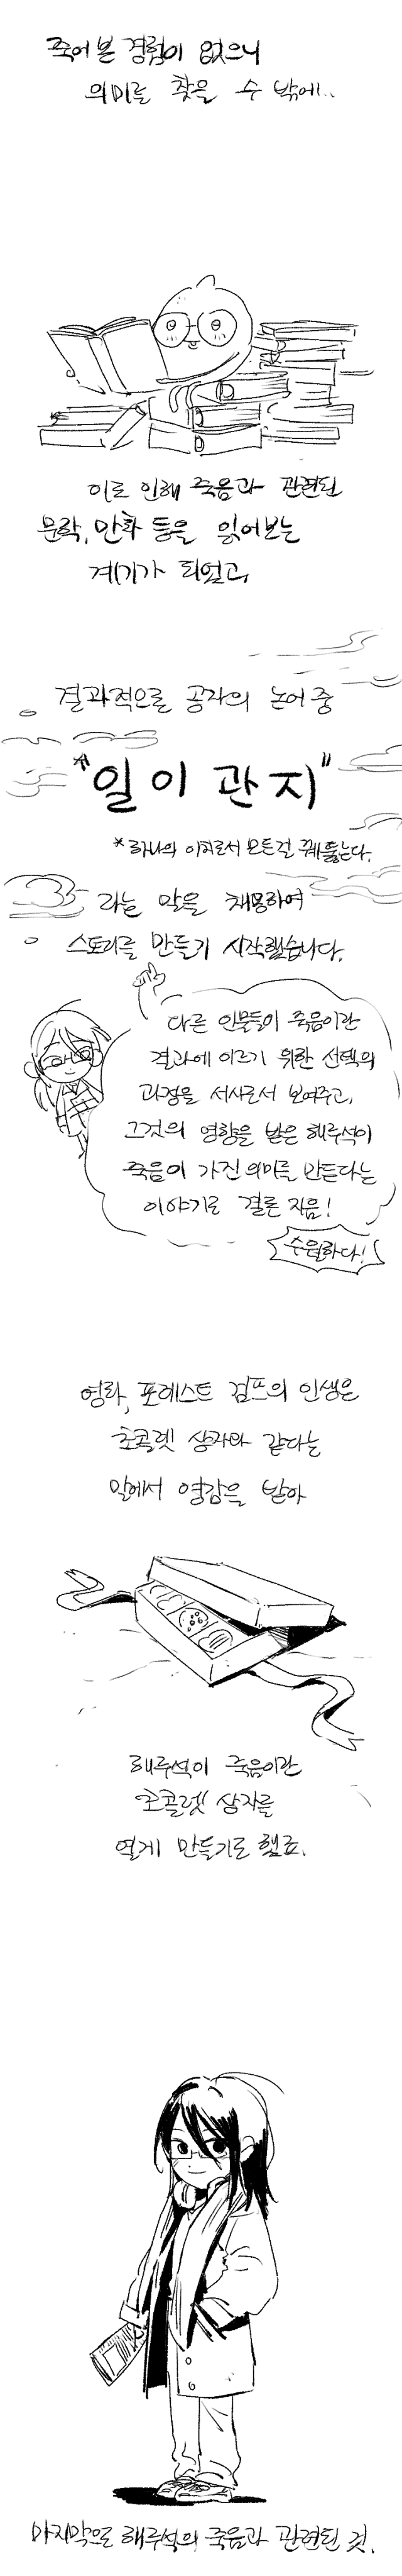 죽어 본 경험이 없으니
의미를 찾을 수 밖에..
이로 인해 죽음과 관련된
문학, 만화 등을 읽어보는
계기가 되었고,
결과적으로 공자의 논어 중
*"일이관지"
*하나의 이치로서 모든걸 꿰뚫는다.
라는 말을 채용하여
스토리를 만들기 시작했습니다.
다른 인물들이 죽음이란
결과에 이르기 위한 선택의
과정을 서사로서 보여주고,
그것의 영향을 받은 해루석이
죽음이 가진 의미를 만든다는
이야기로 결론 지음!
수월하다!
영화, 포레스트 검프의 인생은
초콜렛 상자와 같다는
말에서 영감을 받아
해루석이 죽음이란
초콜렛 상자를
열게 만들기로 했죠.
마지막으로 해루석의 죽음과 관련된 것.